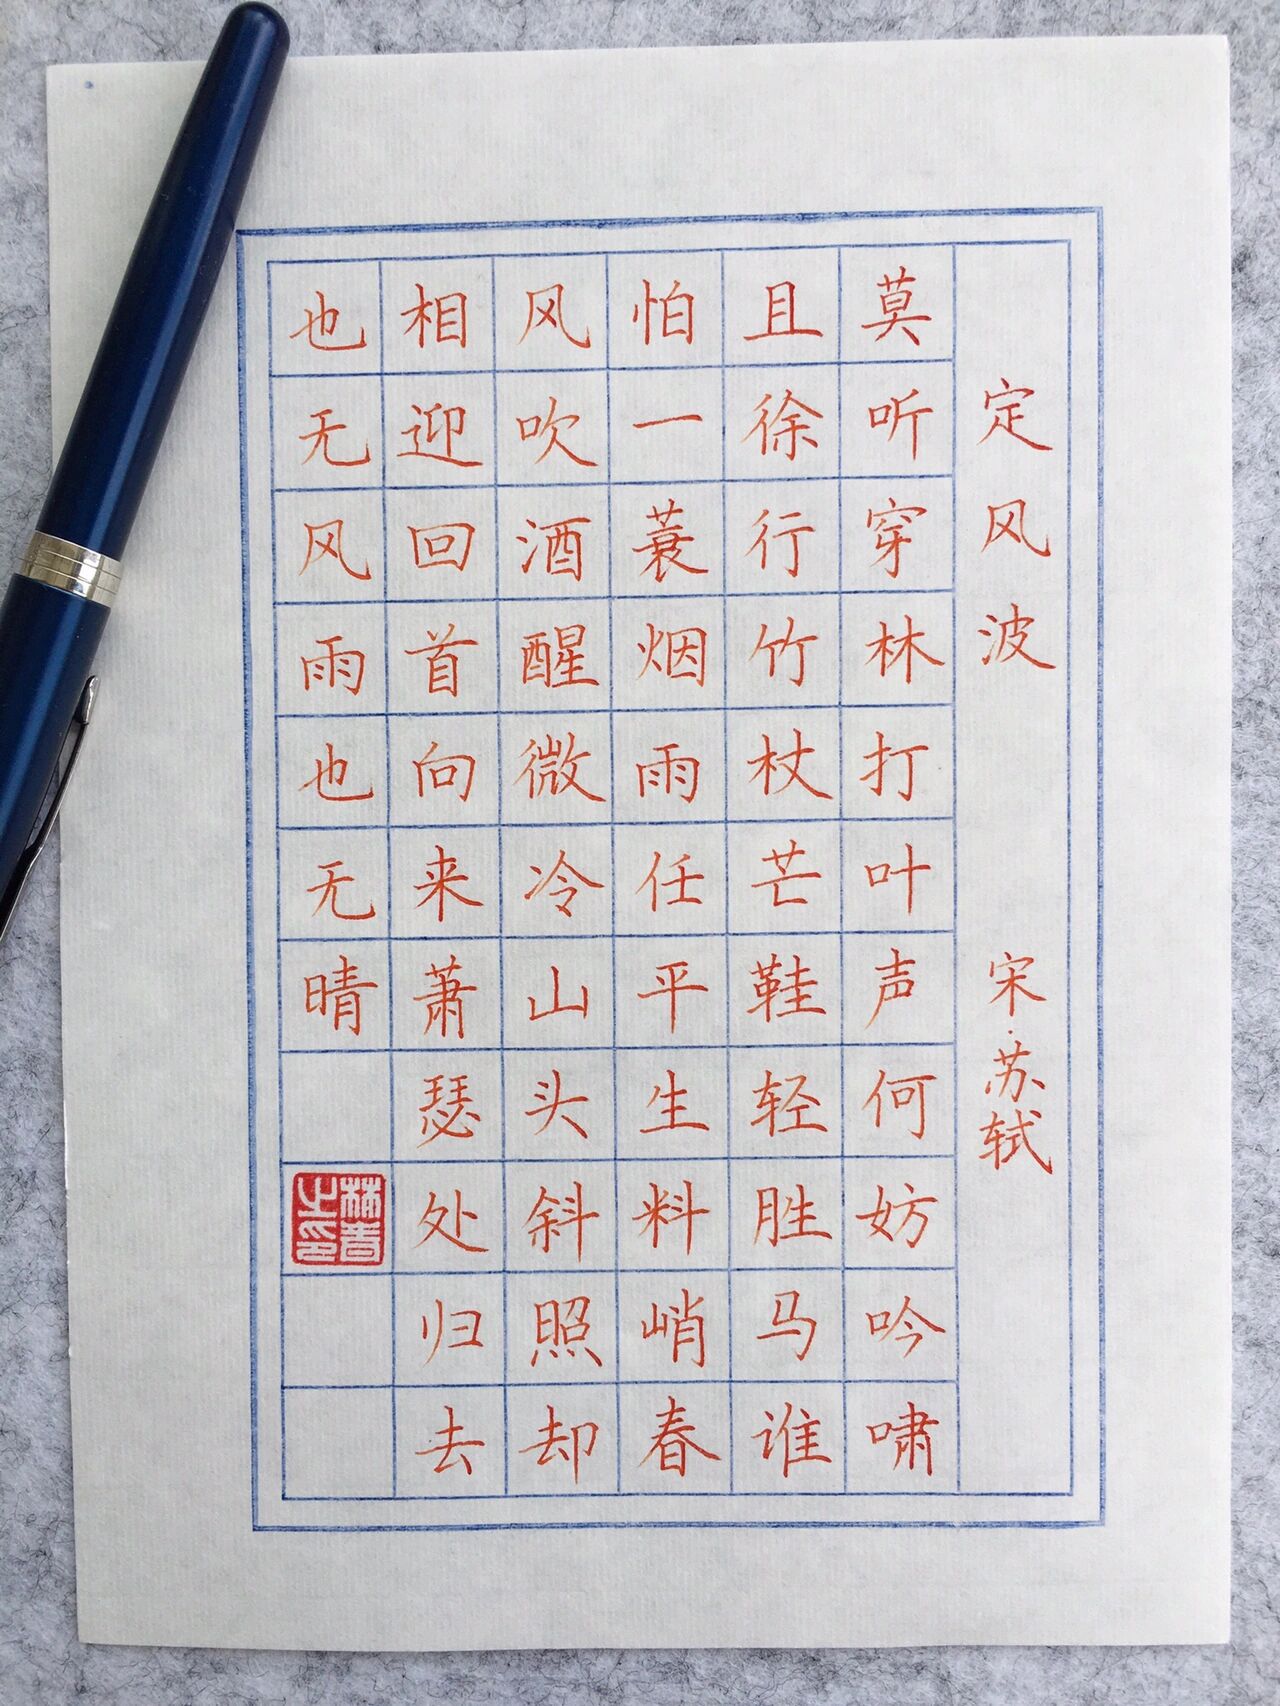 定风波 宋·苏轼
莫听穿林打叶声何妨吟啸
且徐行竹杖芒鞋轻胜马谁
怕一蓑烟雨任平生料峭春
风吹酒醒微冷山头斜照却
相迎回首向来萧瑟处归去
也无风雨也无晴
林春之印